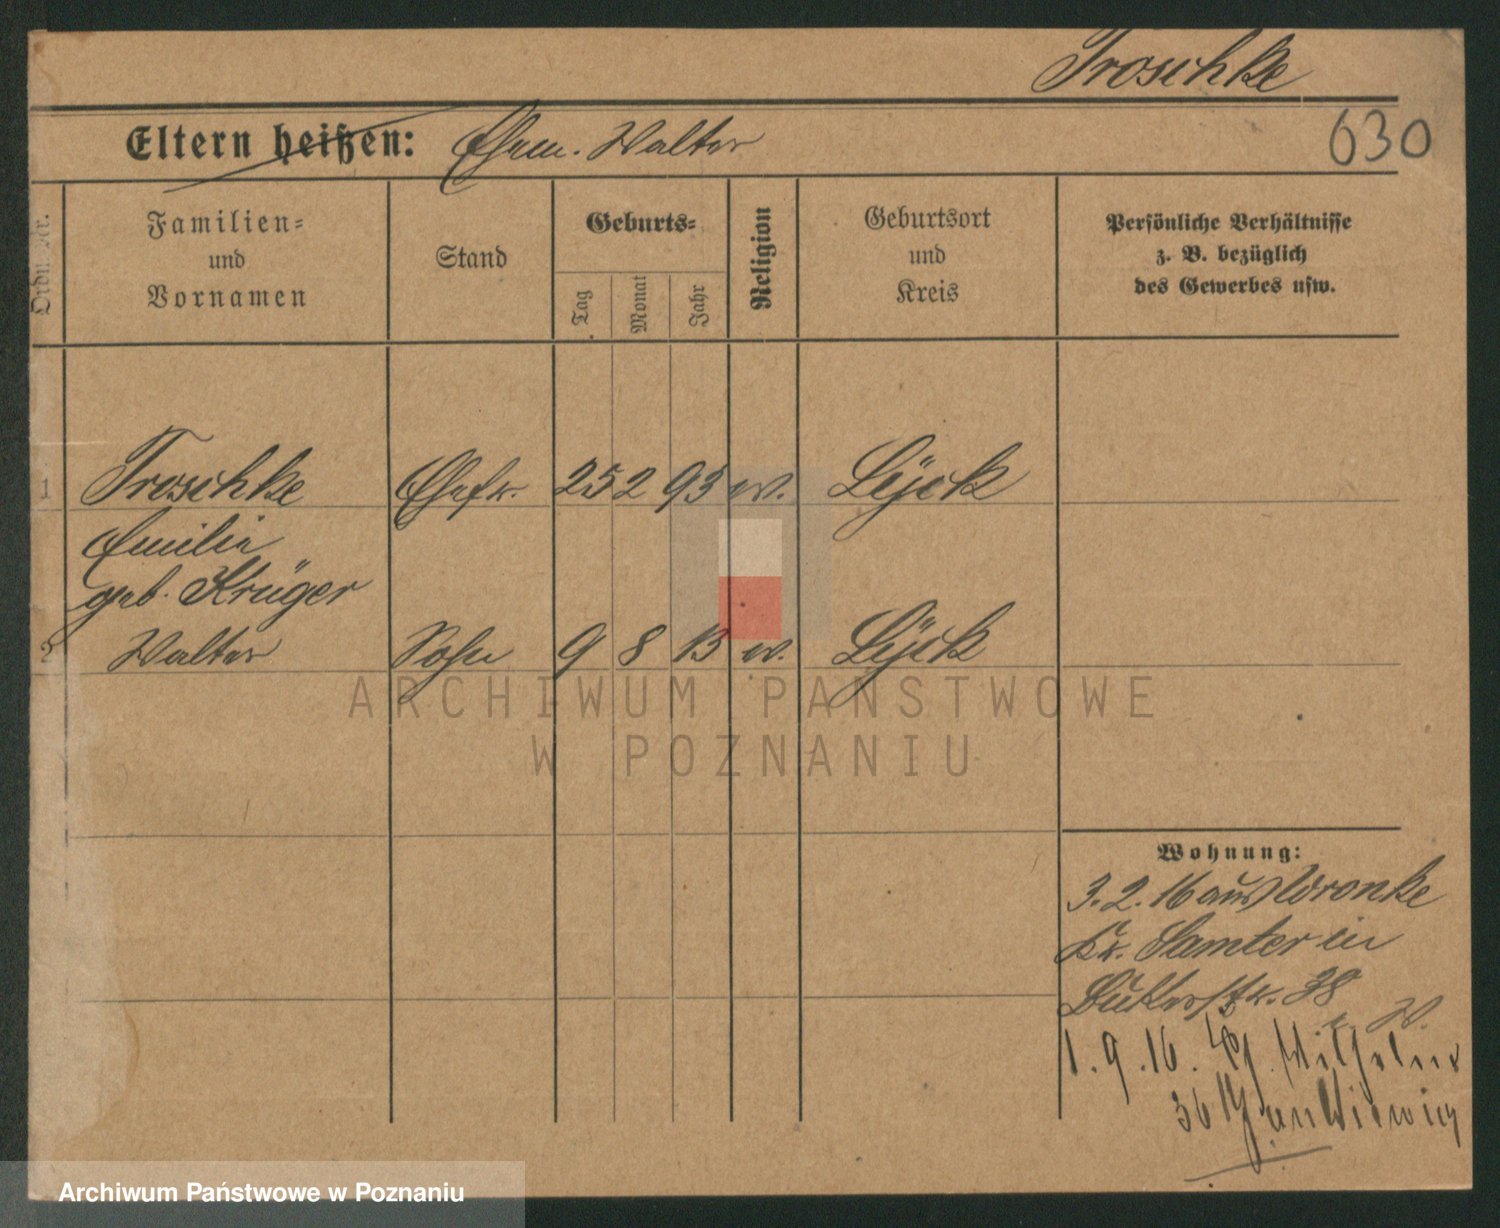 Troschke
Eltern heißen: Ehem. Walter
630
Ordn. Nr.
Familien=
und
Vornamen
Stand
Geburts=
Tag
Monat
Jahr
Religion
Geburtsort
und
Kreis
Persönliche Verhältnisse
z. B. bezüglich
des Gewerbes usw.
1 Troschke Ehefr. 25 2 93 ev. Lyck
Emilie
geb. Krüger
2 Walter Sohn 9 8 13 ev. Lyck
ARCHIWUM PAŃSTWOWE
W POZNANIU
Wohnung:
3. 2. 16 aus Wronke
Kr. Samter in
38
W.
1. 9. 16.
36
Archiwum Państwowe w Poznaniu